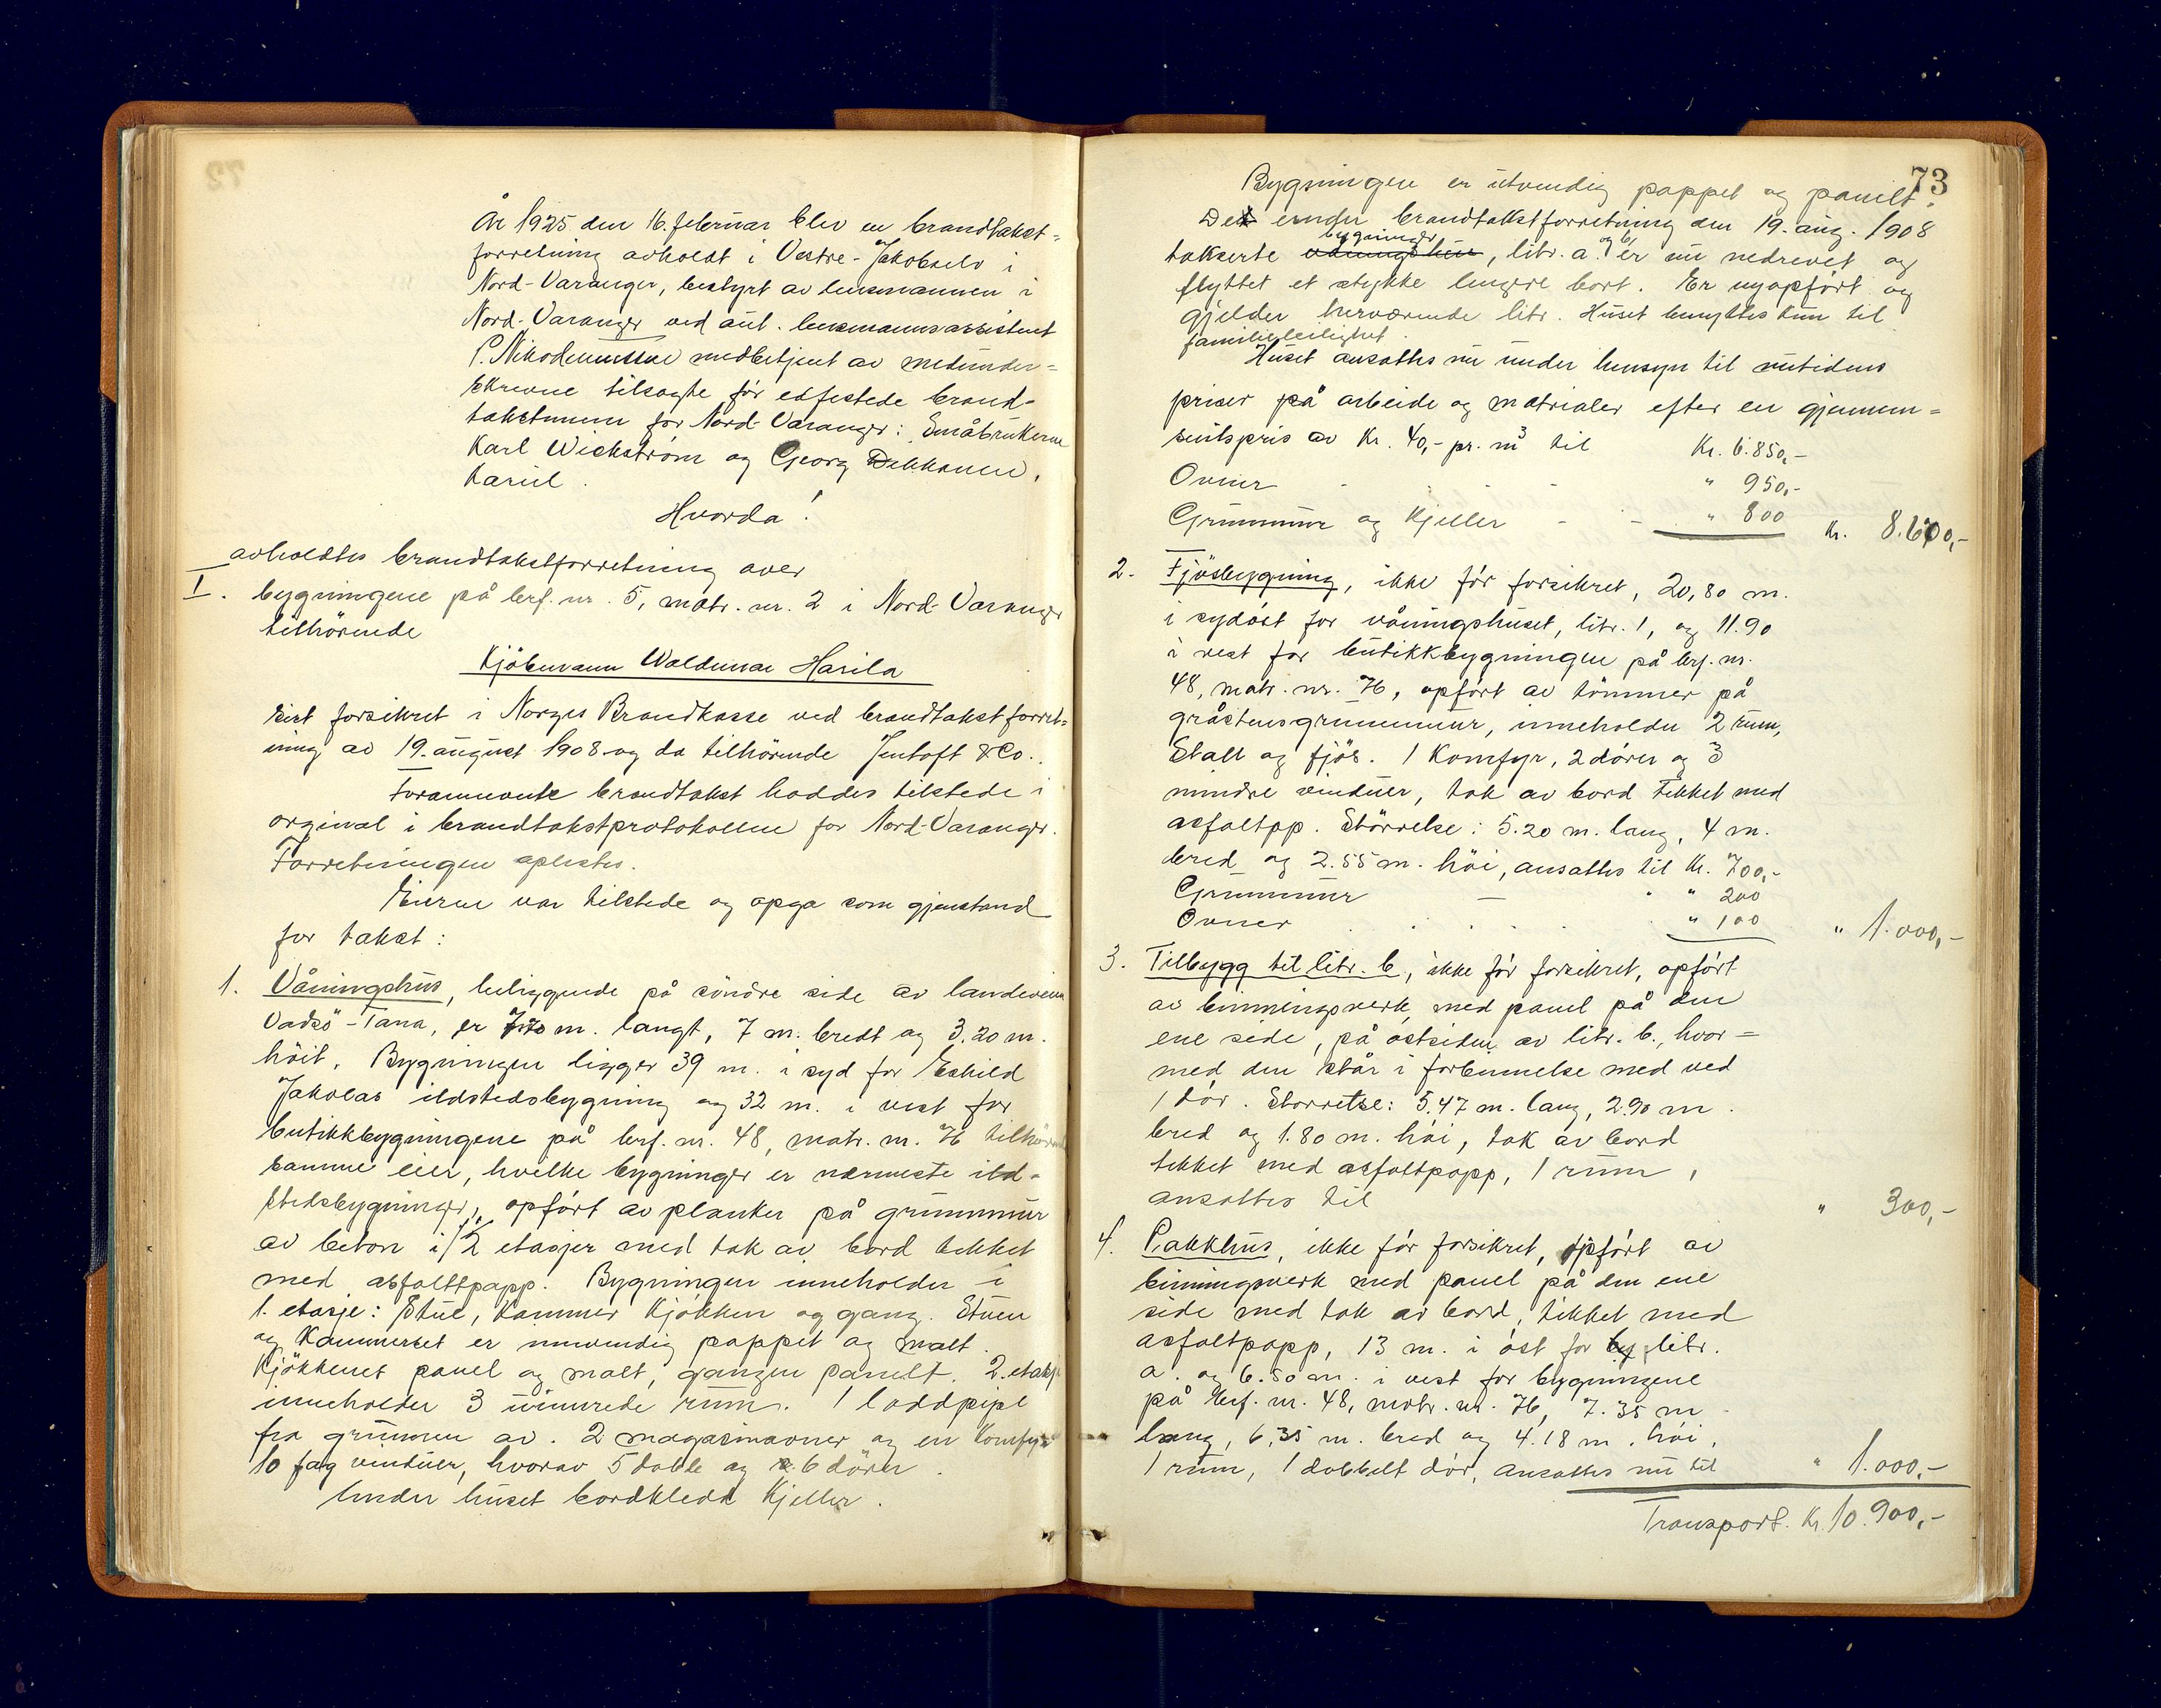 År 1925 den 16. februar blev en brandtakst-
forretning avholdt i Vestre-Jakobselv i
Nord-Varanger, bestyrt av lensmannen i
Nord-Varanger ved aut. lensmannsassistent
P. Nikodemussen medbetjent av medunder-
skrevne tilsagte før edfestede brand-
takstmenn for Nord-Varanger: Småbrukerne
Karl Wickstrøm og Georg Dikkanen,
Hvorda!
avholdtes brandtakstforretning over
I. bygningene på brf. nr. 5, matr. nr. 2 i Nord-Varanger
tilhörende
Kjöbmann Waldemar Harila
sist forsikret i Norges Brandkasse ved brandtakstforret-
ning av 19. august 1908 og da tilhörende Jentoft & Co.
Forannevnte brandtakst haddes tilstede i
orginal i brandtakstprotokollen for Nord-Varanger.
Forretningen oplestes.
Eieren var tilstede og opga som gjenstand
for takst:
1. Våningshus, beliggende på söndre side av landeveien
Vadsö-Tana, er 7.70 m. langt, 7 m. bredt og 3.20 m.
höit. Bygningen ligger 39 m. i syd for Eskild
Jakolas ildstedsbygning og 32 m. i vest for
butikkbygningene på brf. nr. 48, matr. nr. 76 tilhörende
samme eier, hvilke bygninger er nærmeste ild-
stedsbygninger, opfört av planker på grunnmur
av beton i 1/2 etasjer med tak av bord tekket
med asfaltpapp. Bygningen inneholder i
1. etasje: Stue, kammer kjökken og gang. Stuen
og kammerset er innvendig pappet og malt.
Kjökkenet panel og malt, gangen panelt. 2. etasje
inneholder 3 uinnrede rum. 1 loddpipe
fra grunnen av. 2 magasinovner og en komfyr
10 fag vinduer, hvorav 5 doble og 6 dörer.
Under huset bordkledd kjeller.
73
Bygningen er utvendig pappet og panelt.
Det under brandtakstforretning den 19. aug. 1908
takserte våningshus bygninger, litr. a. og b, er nu nedrevet og
flyttet et stykke lengere bort. Er nyopført og
gjelder herværende litr. Huset benyttes kun til
familieleilighet.
Huset ansattes nu under hensyn til nutidens
priser på arbeide og matrialer efter en gjennem-
snitspris av Kr. 40,- pr. m3 til Kr. 6.850,-
Ovner " 950,-
Grunnmur og kjeller " 800 Kr. 8.600,-
2. Fjösbygning, ikke för forsikret, 20,80 m.
i sydöst for våningshuset, litr. 1, og 11.90
i vest for butikkbygningen på brf. nr.
48, matr. nr. 76, opfört av tömmer på
gråstensgrunnmur, inneholder 2 rum,
Stall og fjös. 1 komfyr, 2 dörer og 3
mindre vinduer, tak av bord tekket med
asfaltpp. Störrelse: 5.20 m. lang, 4 m.
bred og 2.55 m. höi, ansattes til Kr. 700,-
Grunnmur " " 200
Ovner " 100 " 1.000,-
3. Tilbygg til litr. b, ikke för forsikret, opfört
av binningsverk, med panel på den
ene side, på östsiden av litr. b., hvor-
med den står i forbinnelse med ved
1 dör. Störrelse: 5.47 m. lang, 2.90 m.
bred og 1.80 m. höi, tak av bord
tekket med asfaltpapp, 1 rum,
ansattes til " 300,-
4. Pakkhus, ikke för forsikret, opfört av
binningsverk med panel på den ene
side med tak av bord, tekket med
asfaltpapp, 13 m. i öst for by litr.
a. og 6.50 m. i vest for bygningene
på brf. nr. 48, matr. nr. 76, 7.35 m
lang, 6,35 m. bred og 4.18 m. höi,
1 rum, 1 dobbelt dör, ansattes nu til " 1.000,-
Transport. Kr. 10.900,-